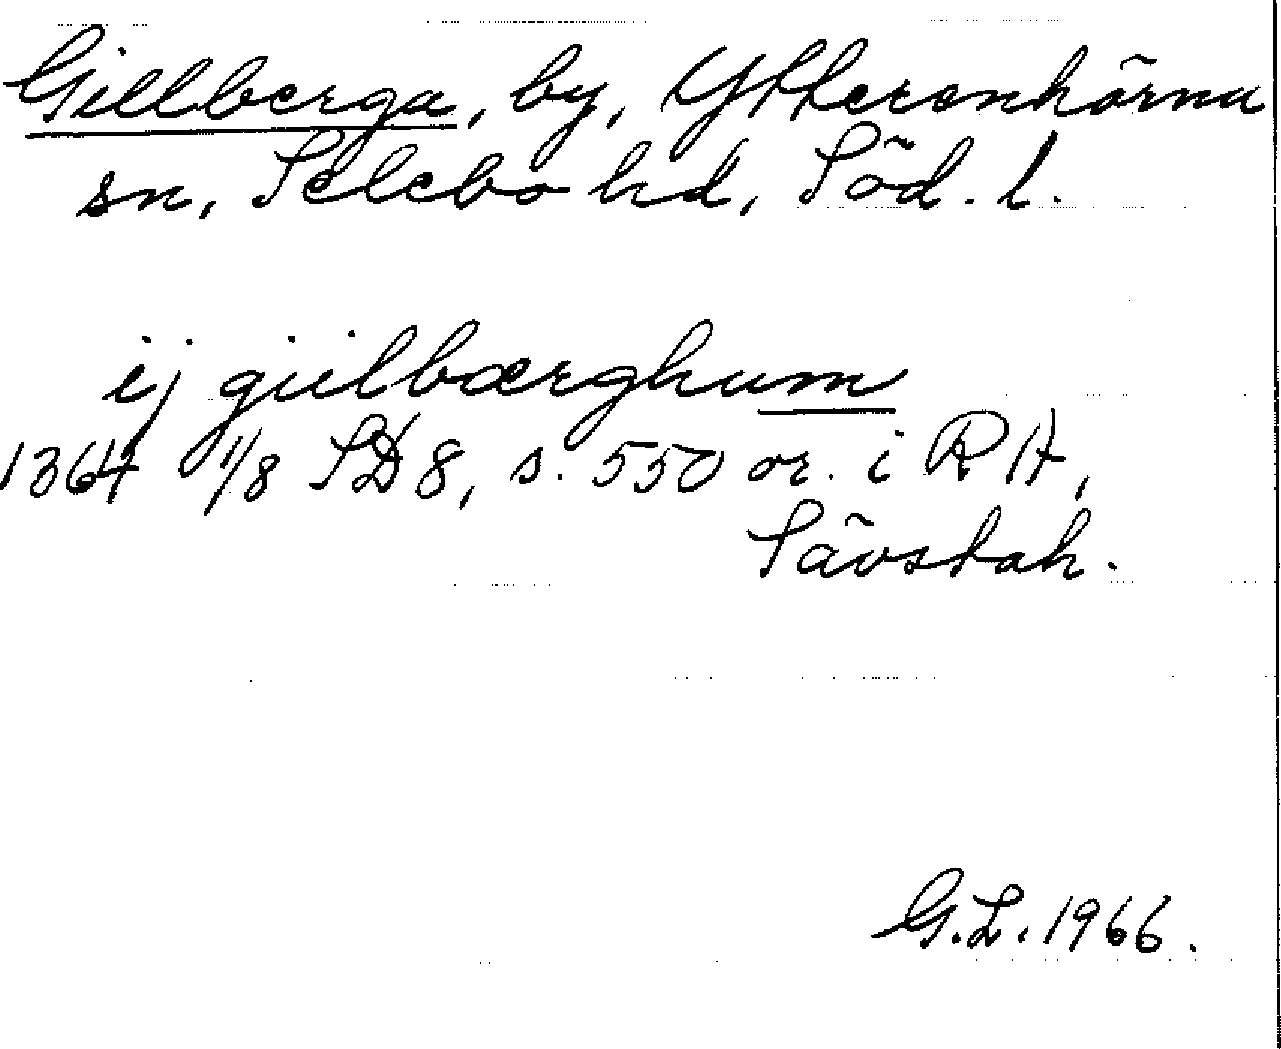 Gillberga, by, Ytterenhörna
sn, Selebo hd, Söd. l.
ij giilbærghum
1364 1/8 SD 8, s. 550 or. i RA,
Sävstah.
G.L. 1966.